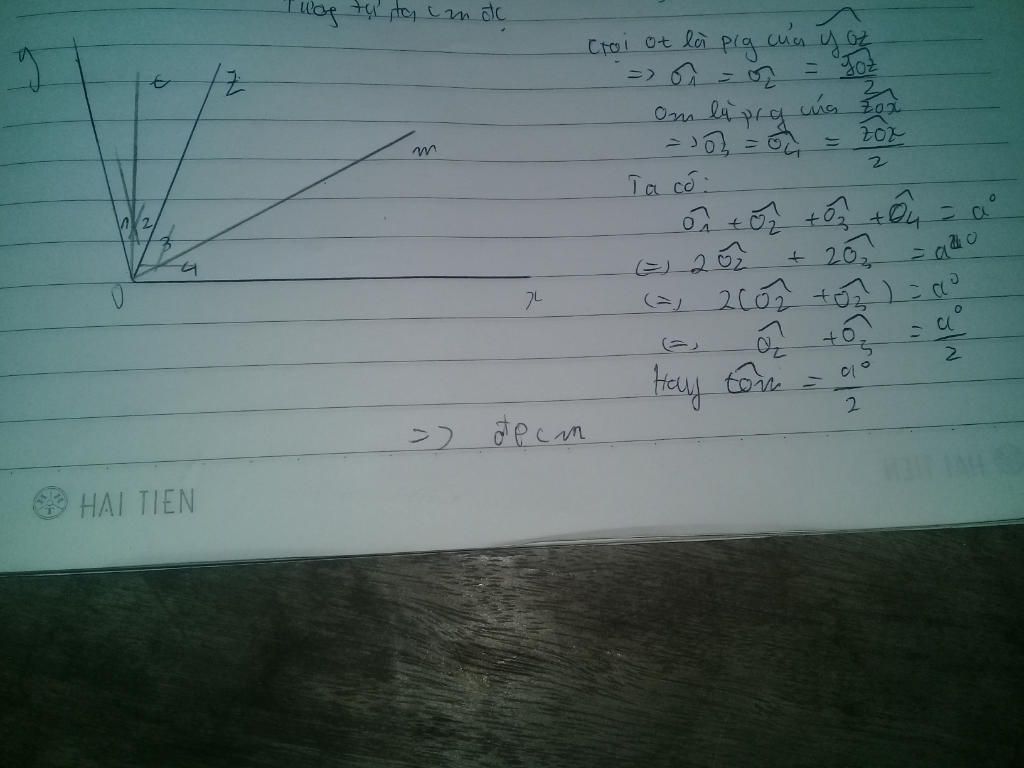 Tương tự, ta cm đc
y
t
z
m
1 2
3
4
O
x
Gọi ot là p/g của yOz
=> O1 = O2 = yOz/2
Om là p/g của zOx
=> O3 = O4 = zOx/2
Ta có:
O1 + O2 + O3 + O4 = a°
(=) 2O2 + 2O3 = a°
(=) 2(O2 + O3) = a°
(=) O2 + O3 = a°/2
Hay tOm = a°/2
=> đpcm
HAI TIEN
HAI TIEN